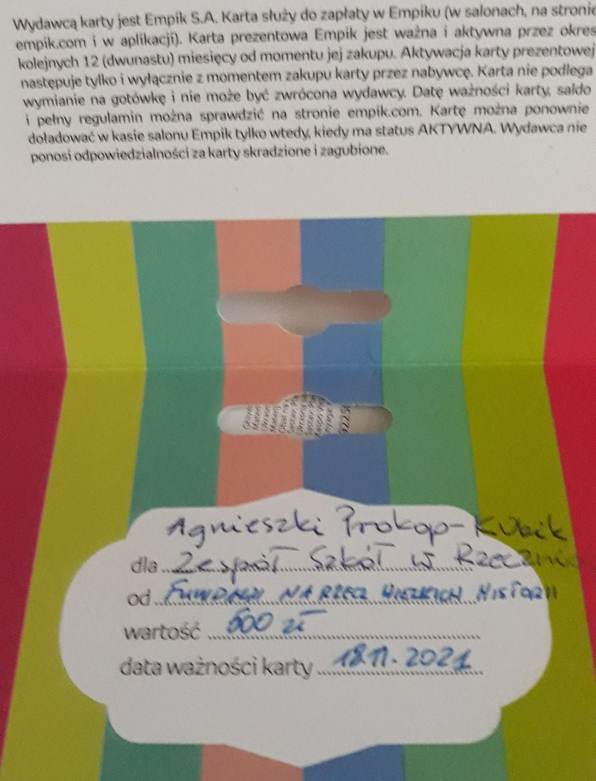 Wydawcą karty jest Empik S.A. Karta służy do zapłaty w Empiku (w salonach, na stronie
empik.com i w aplikacji). Karta prezentowa Empik jest ważna i aktywna przez okres
kolejnych 12 (dwunastu) miesięcy od momentu jej zakupu. Aktywacja karty prezentowej
następuje tylko i wyłącznie z momentem zakupu karty przez nabywcę. Karta nie podlega
wymianie na gotówkę i nie może być zwrócona wydawcy. Datę ważności karty, saldo
i pełny regulamin można sprawdzić na stronie empik.com. Kartę można ponownie
doładować w kasie salonu Empik tylko wtedy, kiedy ma status AKTYWNA. Wydawca nie
ponosi odpowiedzialności za karty skradzione i zagubione.
Agnieszki Prokop-Kubik
dla Zespół Szkół w Rzeczni
od FUNDACJI NA RZECZ WIELKICH HISTORII
wartość 500 zł
data ważności karty 18.11.2021